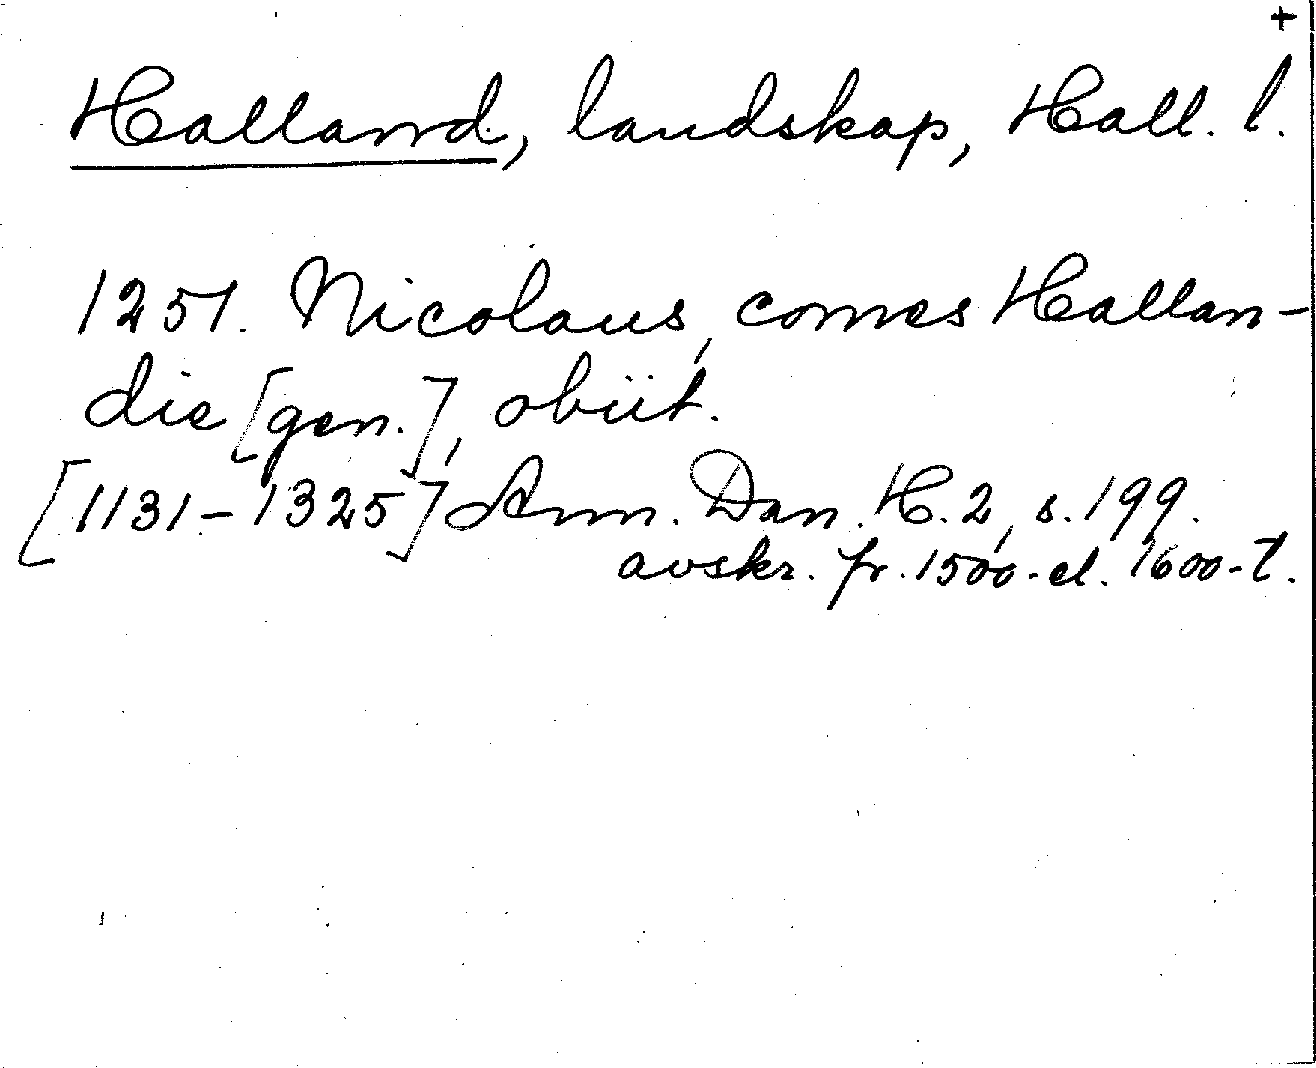 +
Halland, landskap, Hall. l.
1251. Nicolaus, comes Hallan-
die [gen.], obiit.
[1131-1325] Ann. Dan. H. 2, s. 199.
avskr. fr. 1500- el. 1600-t.